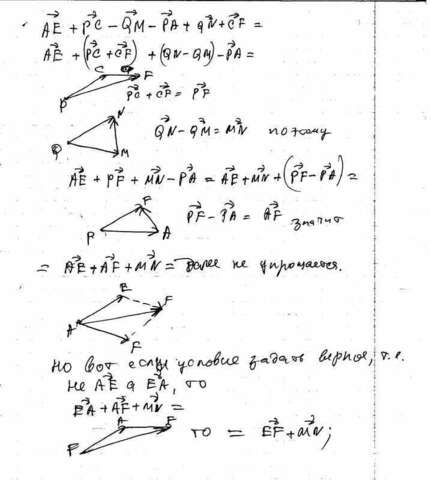 AE + PC − QM − PA + QN + CF =
AE + (PC + CF) + (QN − QM) − PA =
C F
P
PC + CF = PF
N
Q
M
QN − QM = MN поэтому
AE + PF + MN − PA = AE + MN + (PF − PA) =
F
P A
PF − PA = AF значит
= AE + AF + MN = далее не упрощается.
E
F
A
F
но вот если условие задать верное, т.е.
не AE а EA, то
EA + AF + MN =
A F
то = EF + MN;